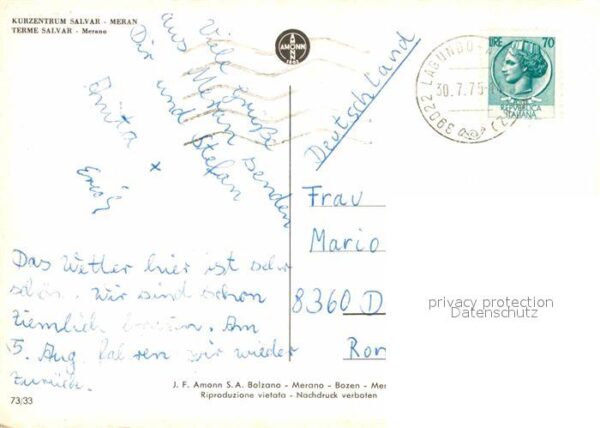 KURZENTRUM SALVAR - MERAN
TERME SALVAR - Merano
AMONN
LIRE 70
REPVBBLICA
ITALIANA
39022 LAGUNDO
30.7.75
Viele Grüße
aus Meran senden
Dir und Stefan
Anita +
Erich
Deutschland
Frau
Mario
8360 D
Ron
Das Wetter hier ist sehr
schön. Wir sind schon
ziemlich braun. Am
5. Aug. fahren wir wieder
zurück.
privacy protection
Datenschutz
J. F. Amonn S.A. Bolzano - Merano - Bozen - Mer
Riproduzione vietata - Nachdruck verboten
73/33